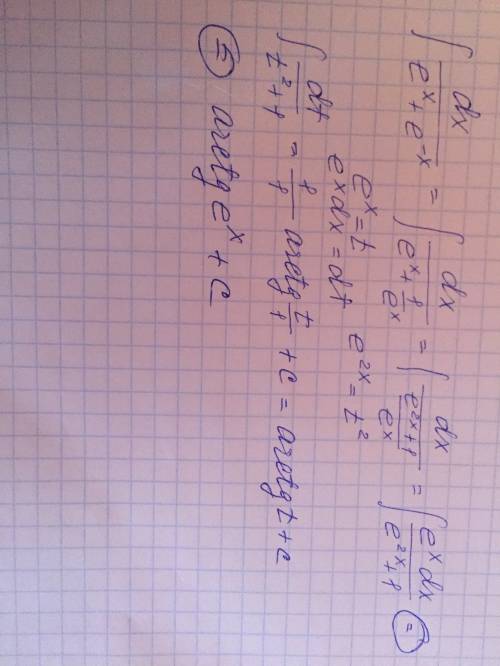 ∫ dx/(eˣ + e⁻ˣ) = ∫ dx/(eˣ + 1/eˣ) = ∫ dx/((e²ˣ+1)/eˣ) = ∫ eˣdx/(e²ˣ+1) ⊜
eˣ = t e²ˣ = t²
eˣdx = dt
∫ dt/(t²+1) = 1/1 arctg t/1 + c = arctg t + c
⊜ arctg eˣ + c